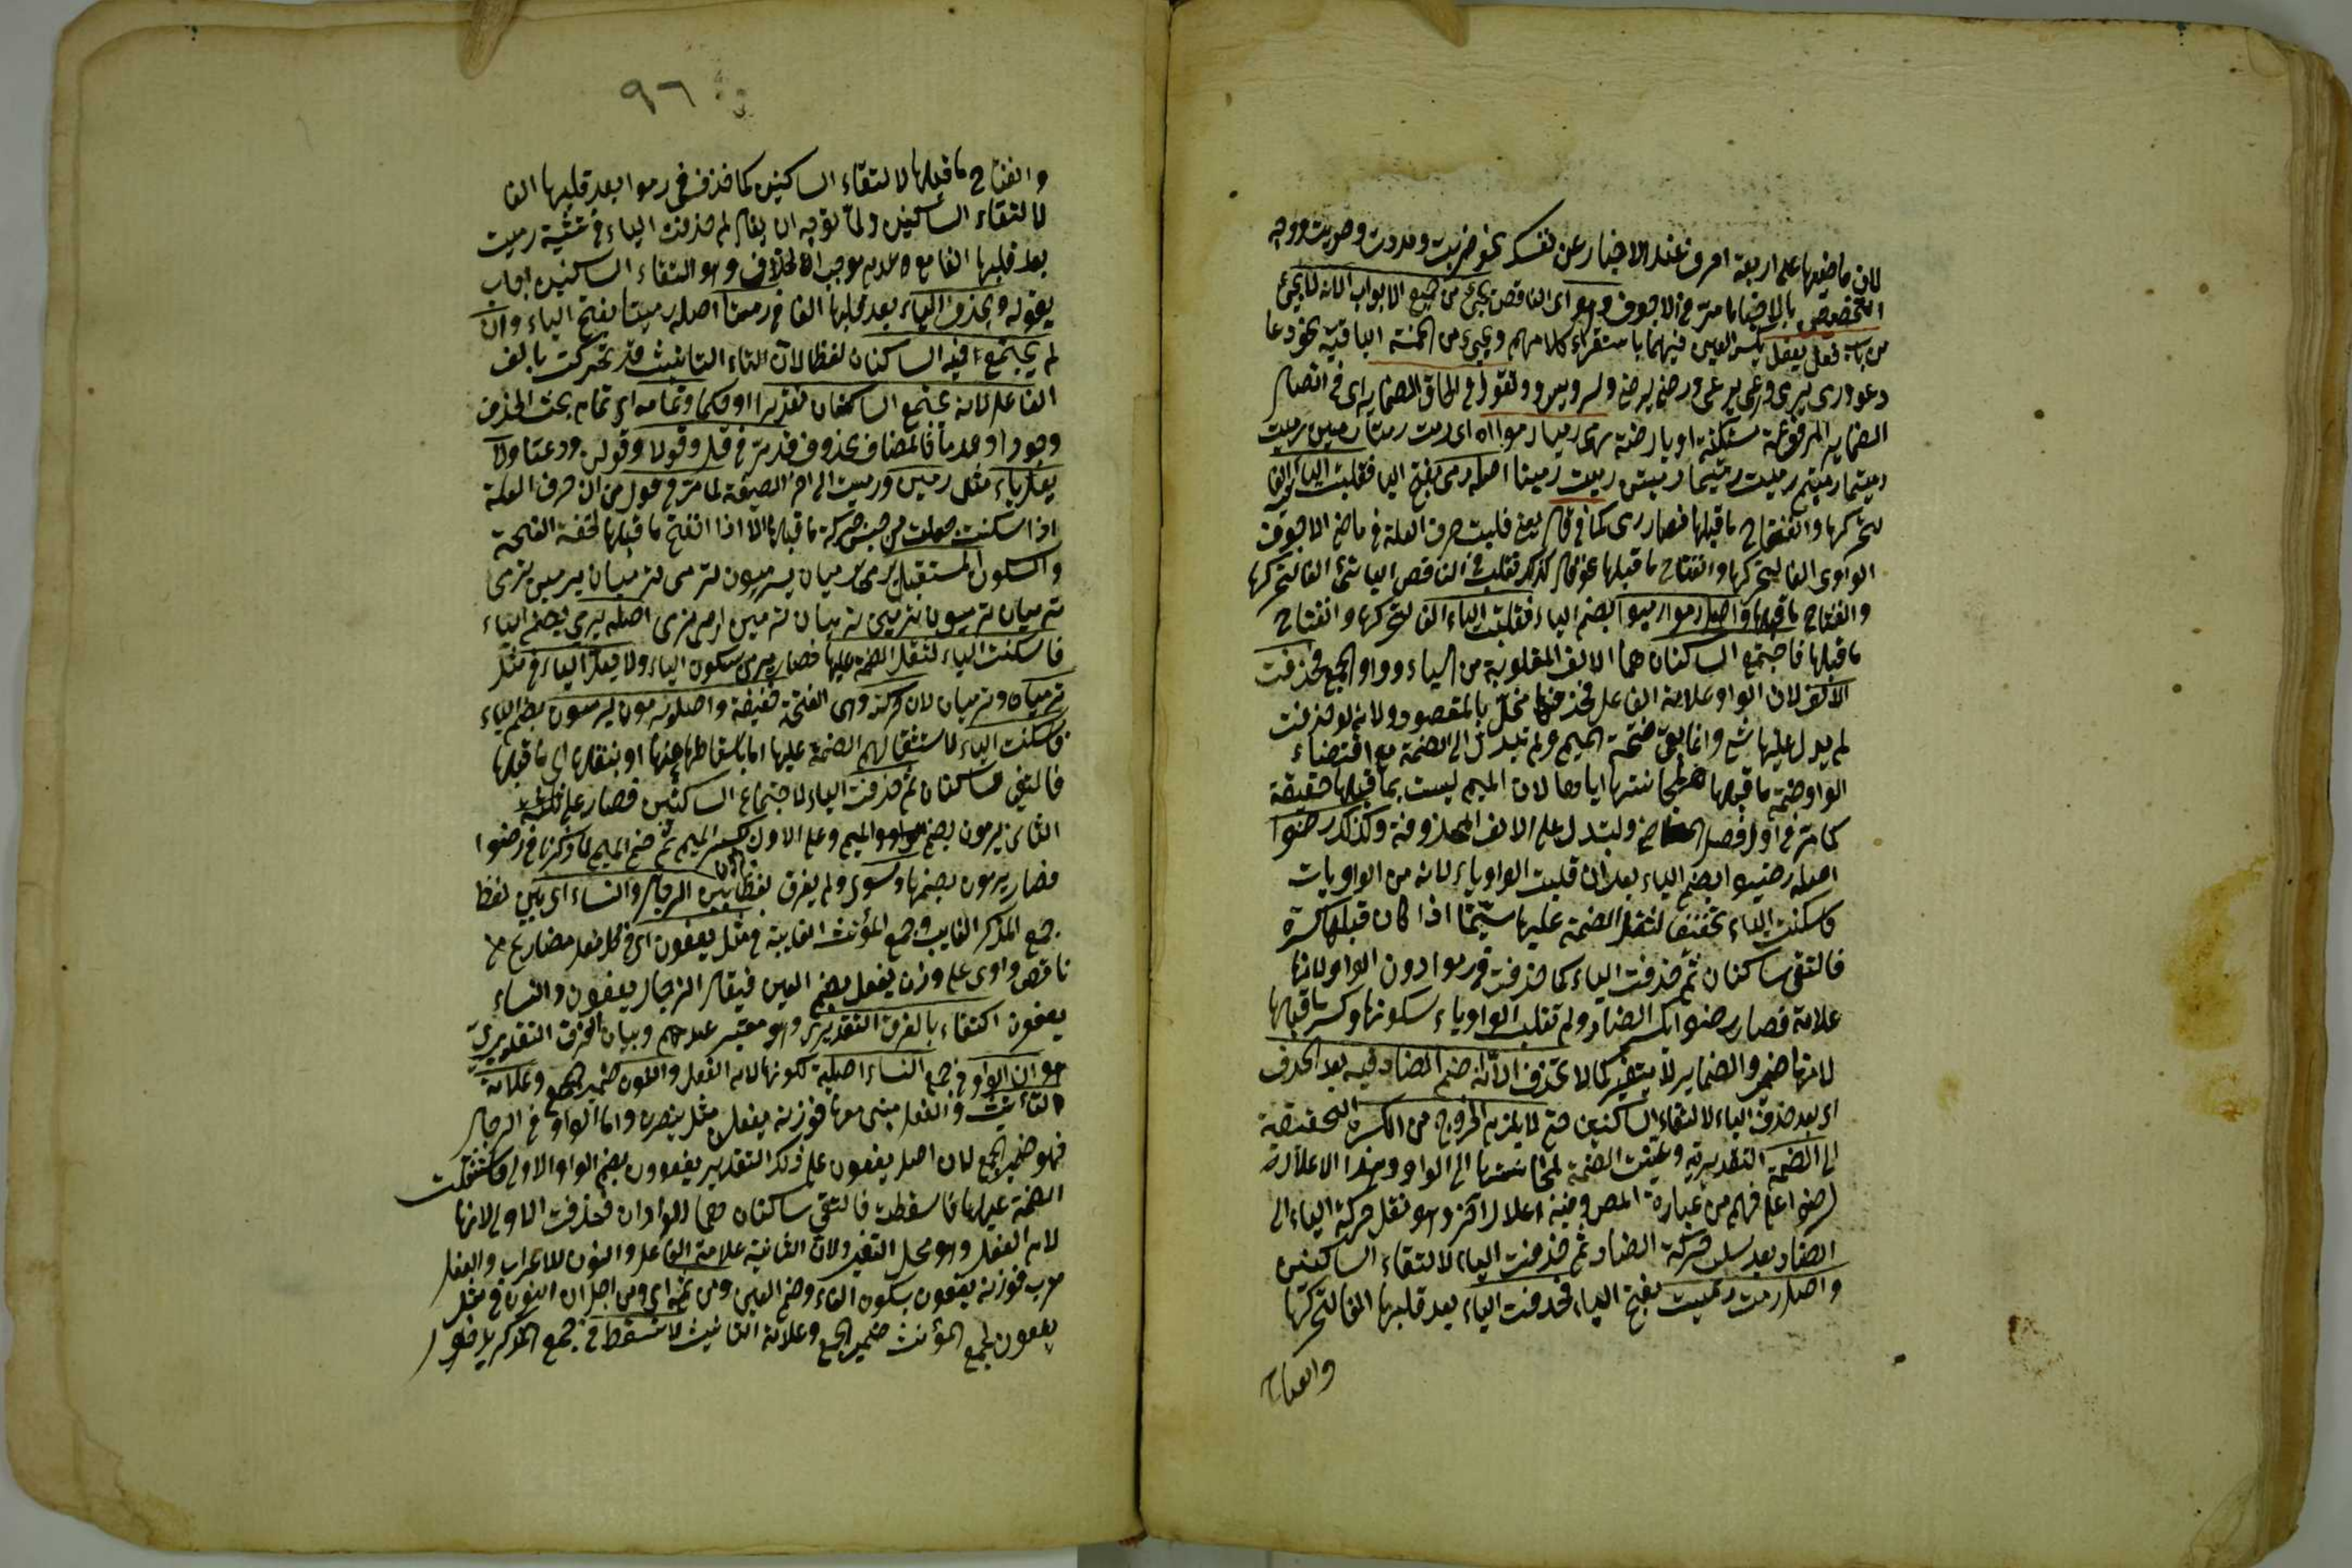 لان ماضيها على اربعة احرف عند الاخبار عن نفسك نحو ضربت ومددت وصربت ووجه
التخصيص بالاضما مر في الاجوف وهو اى الناقص يجئ من جميع الابواب الا انه لا يجئ
من باب فعل يفعل بكسر العين فيهما باستقراء كلامهم ويجئ من الخمسة الباقية نحو دعا
يدعو ورمى يرمى ورعى يرعى ورضى يرضى وسرو يسرو وتقول فى الحاق الضماير اى فى اتصال
الضماير المرفوعة رمى رميا رموا اه اى رمت رمتا رمين رميت
رميتما رميتم رميت رميتما رميتن رميت رمينا اصله رمى بفتح اليا فقلبت الياء الفا
لتحركها وانفتاح ما قبلها فصار رمى كما فى قال يعنى قلبت حرف العلة فى ماضى الاجوف
الواوى الفا لتحركها وانفتاح ما قبلها نحو قال كذلك تقلب فى الناقص اليائى الفا لتحركها
وانفتاح ما قبلها واصل رموا رميوا بضم الياء فقلبت الياء الفا لتحركها وانفتاح
ما قبلها فاجتمع الساكنان هما الالف المقلوبة من الياء وواو الجمع فحذفت
الالف لان الواو علامة الفاعل فحذفها مخل بالمقصود ولانه لو حذفت
لم يدل عليها شئ وانما بقى فتحة الميم ولم تبدل الى الضمة مع اقتضاء
الواو ضمة ما قبلها لمجانستها اياها لان الميم ليست بما قبلها حقيقة
كما مر فى اول فصل الماضى ولتدل على الالف المحذوفة وكذلك رضوا
اصله رضيوا بضم الياء بعد ان قلبت الواو ياء لانه من الواويات
فاسكنت الياء تخفيفا لثقل الضمة عليها سيما اذا كان قبلها كسرة
فالتقى ساكنان ثم حذفت الياء كما حذفت فى رموا دون الواو لانها
علامة فصار رضوا بكسر الضاد ولم تقلب الواو ياء لسكونها وكسر ما قبلها
لانها ضمير والضماير لا يتغير كما لا تحذف الا انه ضم الضاد فيه بعد الحذف
اى بعد حذف الياء لالتقاء الساكنين حتى لا يلزم الخروج من الكسرة التحقيقية
الى الضمة التقديرية وعينت الضمة لمجانستها الى الواو وهذا الاعلال فى
رضوا على فهم من عبارة المص وفيه اعلال آخر وهو نقل حركة الياء الى
الضاد بعد سلب حركة الضاد ثم حذفت الياء لالتقاء الساكنين
واصل رمت رميت بفتح الياء فحذفت الياء بعد قلبها الفا لتحركها
وانفتاح
٩٦
وانفتاح ما قبلها لالتقاء الساكنين كما حذفت فى رموا بعد قلبها الفا
لالتقاء الساكنين ولما توجه ان يقال لم حذفت الياء فى تثنية رميت
بعد قلبها الفا مع عدم موجب الحذف وهو التقاء الساكنين اجاب
بقوله وتحذف الياء بعد قلبها الفا فى رمتا اصله رميتا بفتح الياء وان
لم يجتمع فيه الساكنان لفظا لان التاء التأنيث قد تحركت بالف
الفاعل لانه يجتمع الساكنان تقديرا او حكما وتمامه اى تمام بحث الحذف
وجودا وعدما فالمضاف محذوف قد مر فى قل وقولا وقولن ودعتا ولا
يعل ياء مثل رمين ورميت الى اخر الصيغة لما مر فى قول من ان حرف العلة
اذا سكنت جعلت من جنس حركة ما قبلها الا اذا انفتح ما قبلها لخفة الفتحة
والسكون المستقبل يرمى يرميان يرميون ترمى ترميان يرمين ترمى
ترميان ترميون ترمين ترميان ترمين ارمى نرمى اصله يرمى بضم الياء
فاسكنت الياء لثقل الضمة عليها فصار يرمى بسكون الياء ولا يعل الياء فى مثل
يرميان وترميان لان حركته وهى الفتحة خفيفة واصل يرمون يرميون بضم الياء
فاسكنت الياء لاستثقالهم الضمة عليها اما باسقاطها عنها او بنقلها اى ما قبلها
فالتقى ساكنان ثم حذفت الياء لاجتماع الساكنين فصار على
الثانى يرمون بضم الميم وعلى الاول بكسر الميم ثم ضم الميم لما ذكرنا فى رضوا
فصار يرمون بضمها وسوى ولم يفرق لفظا بين الرجال والنساء اى بين لفظ
جمع المذكر الغايب وجمع المؤنث الغايبة فى مثل يعفون اى فى كل فعل مضارع من
ناقص واوى على وزن يفعل بضم العين فيقال الرجال يعفون والنساء
يعفون اكتفاء بالفرق التقديرى وهو معتبر عندهم وبيان الفرق التقديرى
هو ان الواو فى جمع النساء اصلية لكونها لام الفعل والنون ضمير الجمع وعلامة
التأنيث والفعل مبنى معها فوزنه يفعلن مثل ينصرن واما الواو فى الرجال
فهو ضمير الجمع لان اصل يعفون على ذلك التقدير يعفوون بضم الواو الاولى فاستثقلت
الضمة عليها فاسقطت فالتقى ساكنان هما الواوان فحذفت الاولى لانها
لام الفعل وهو محل التغير ولان الثانية علامة الفاعل والنون للاعراب والفعل
معرب فوزنه يفعون بسكون الفاء وضم العين ومن ثمه اى ومن اجل ان النون فى مثل
يعفون لجمع المؤنث ضمير الجمع وعلامة التأنيث لا تسقط فى جمع المذكر